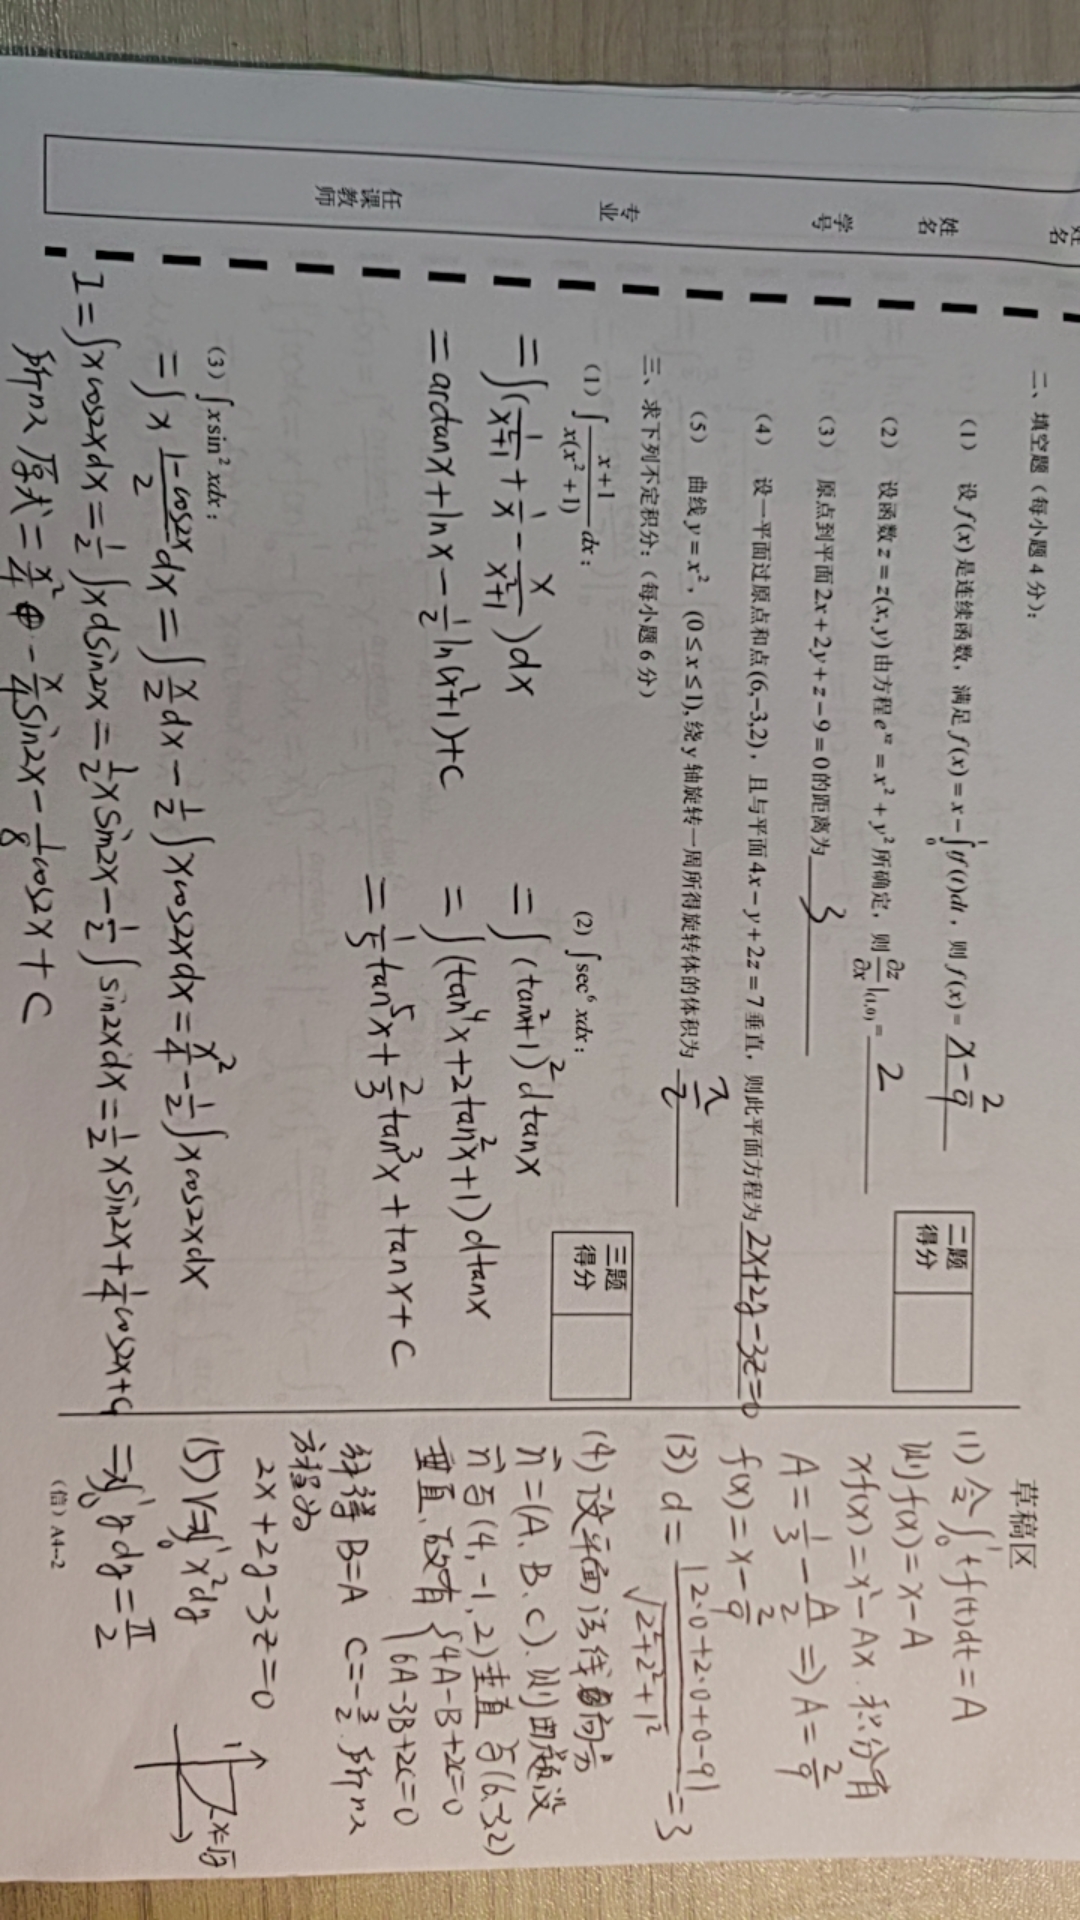 姓名
姓名
学号
专业
任课教师
二、填空题（每小题 4 分）：
二题得分
（1） 设 f(x) 是连续函数，满足 f(x) = x − ∫₀¹ tf(t)dt，则 f(x) = x − 2/9
（2） 设函数 z = z(x, y) 由方程 e^{xz} = x² + y² 所确定，则 ∂z/∂x |(1,0) = 2
（3） 原点到平面 2x + 2y + z − 9 = 0 的距离为 3
（4） 设一平面过原点和点 (6,−3,2)，且与平面 4x − y + 2z = 7 垂直，则此平面方程为 2x+2y−3z=0
（5） 曲线 y = x²，(0 ≤ x ≤ 1), 绕 y 轴旋转一周所得旋转体的体积为 π/2
三、求下列不定积分：（每小题 6 分）
三题得分
（1） ∫ (x+1)/(x(x²+1)) dx；
= ∫(1/(x²+1) + 1/x − x/(x²+1))dx
= arctanx + lnx − 1/2 ln(x²+1)+C
（2） ∫ sec⁶ xdx；
= ∫(tan²x+1)² dtanx
= ∫(tan⁴x+2tan²x+1)dtanx
= 1/5 tan⁵x + 2/3 tan³x + tanx + C
（3） ∫ x sin² xdx；
= ∫ x (1−cos2x)/2 dx = ∫ x/2 dx − 1/2 ∫ xcos2xdx = x²/4 − 1/2 ∫ xcos2xdx
I = ∫ xcos2xdx = 1/2 ∫ xdsin2x = 1/2 xsin2x − 1/2 ∫ sin2xdx = 1/2 xsin2x + 1/4 cos2x + C₁
所以 原式 = x²/4 − x/4 sin2x − 1/8 cos2x + C
草稿区
(1) 令 ∫₀¹ tf(t)dt = A
则 f(x) = x − A
xf(x) = x² − Ax. 积分有
A = 1/3 − A/2 ⇒ A = 2/9
f(x) = x − 2/9
(3) d = |2·0+2·0+0−9| / √(2²+2²+1²) = 3
(4) 设平面法线向为
n⃗ = (A, B, C). 则由题设
n⃗ 与 (4, −1, 2) 垂直 与 (6,−3,2)
垂直. 故有 { 4A−B+2C=0
6A−3B+2C=0
解得 B=A C=−3/2. 所以
方程为
2x + 2y − 3z = 0
(5) V=π∫₀¹ x²dy
=π∫₀¹ y dy = π/2
1
x=√y
（信）A4--2